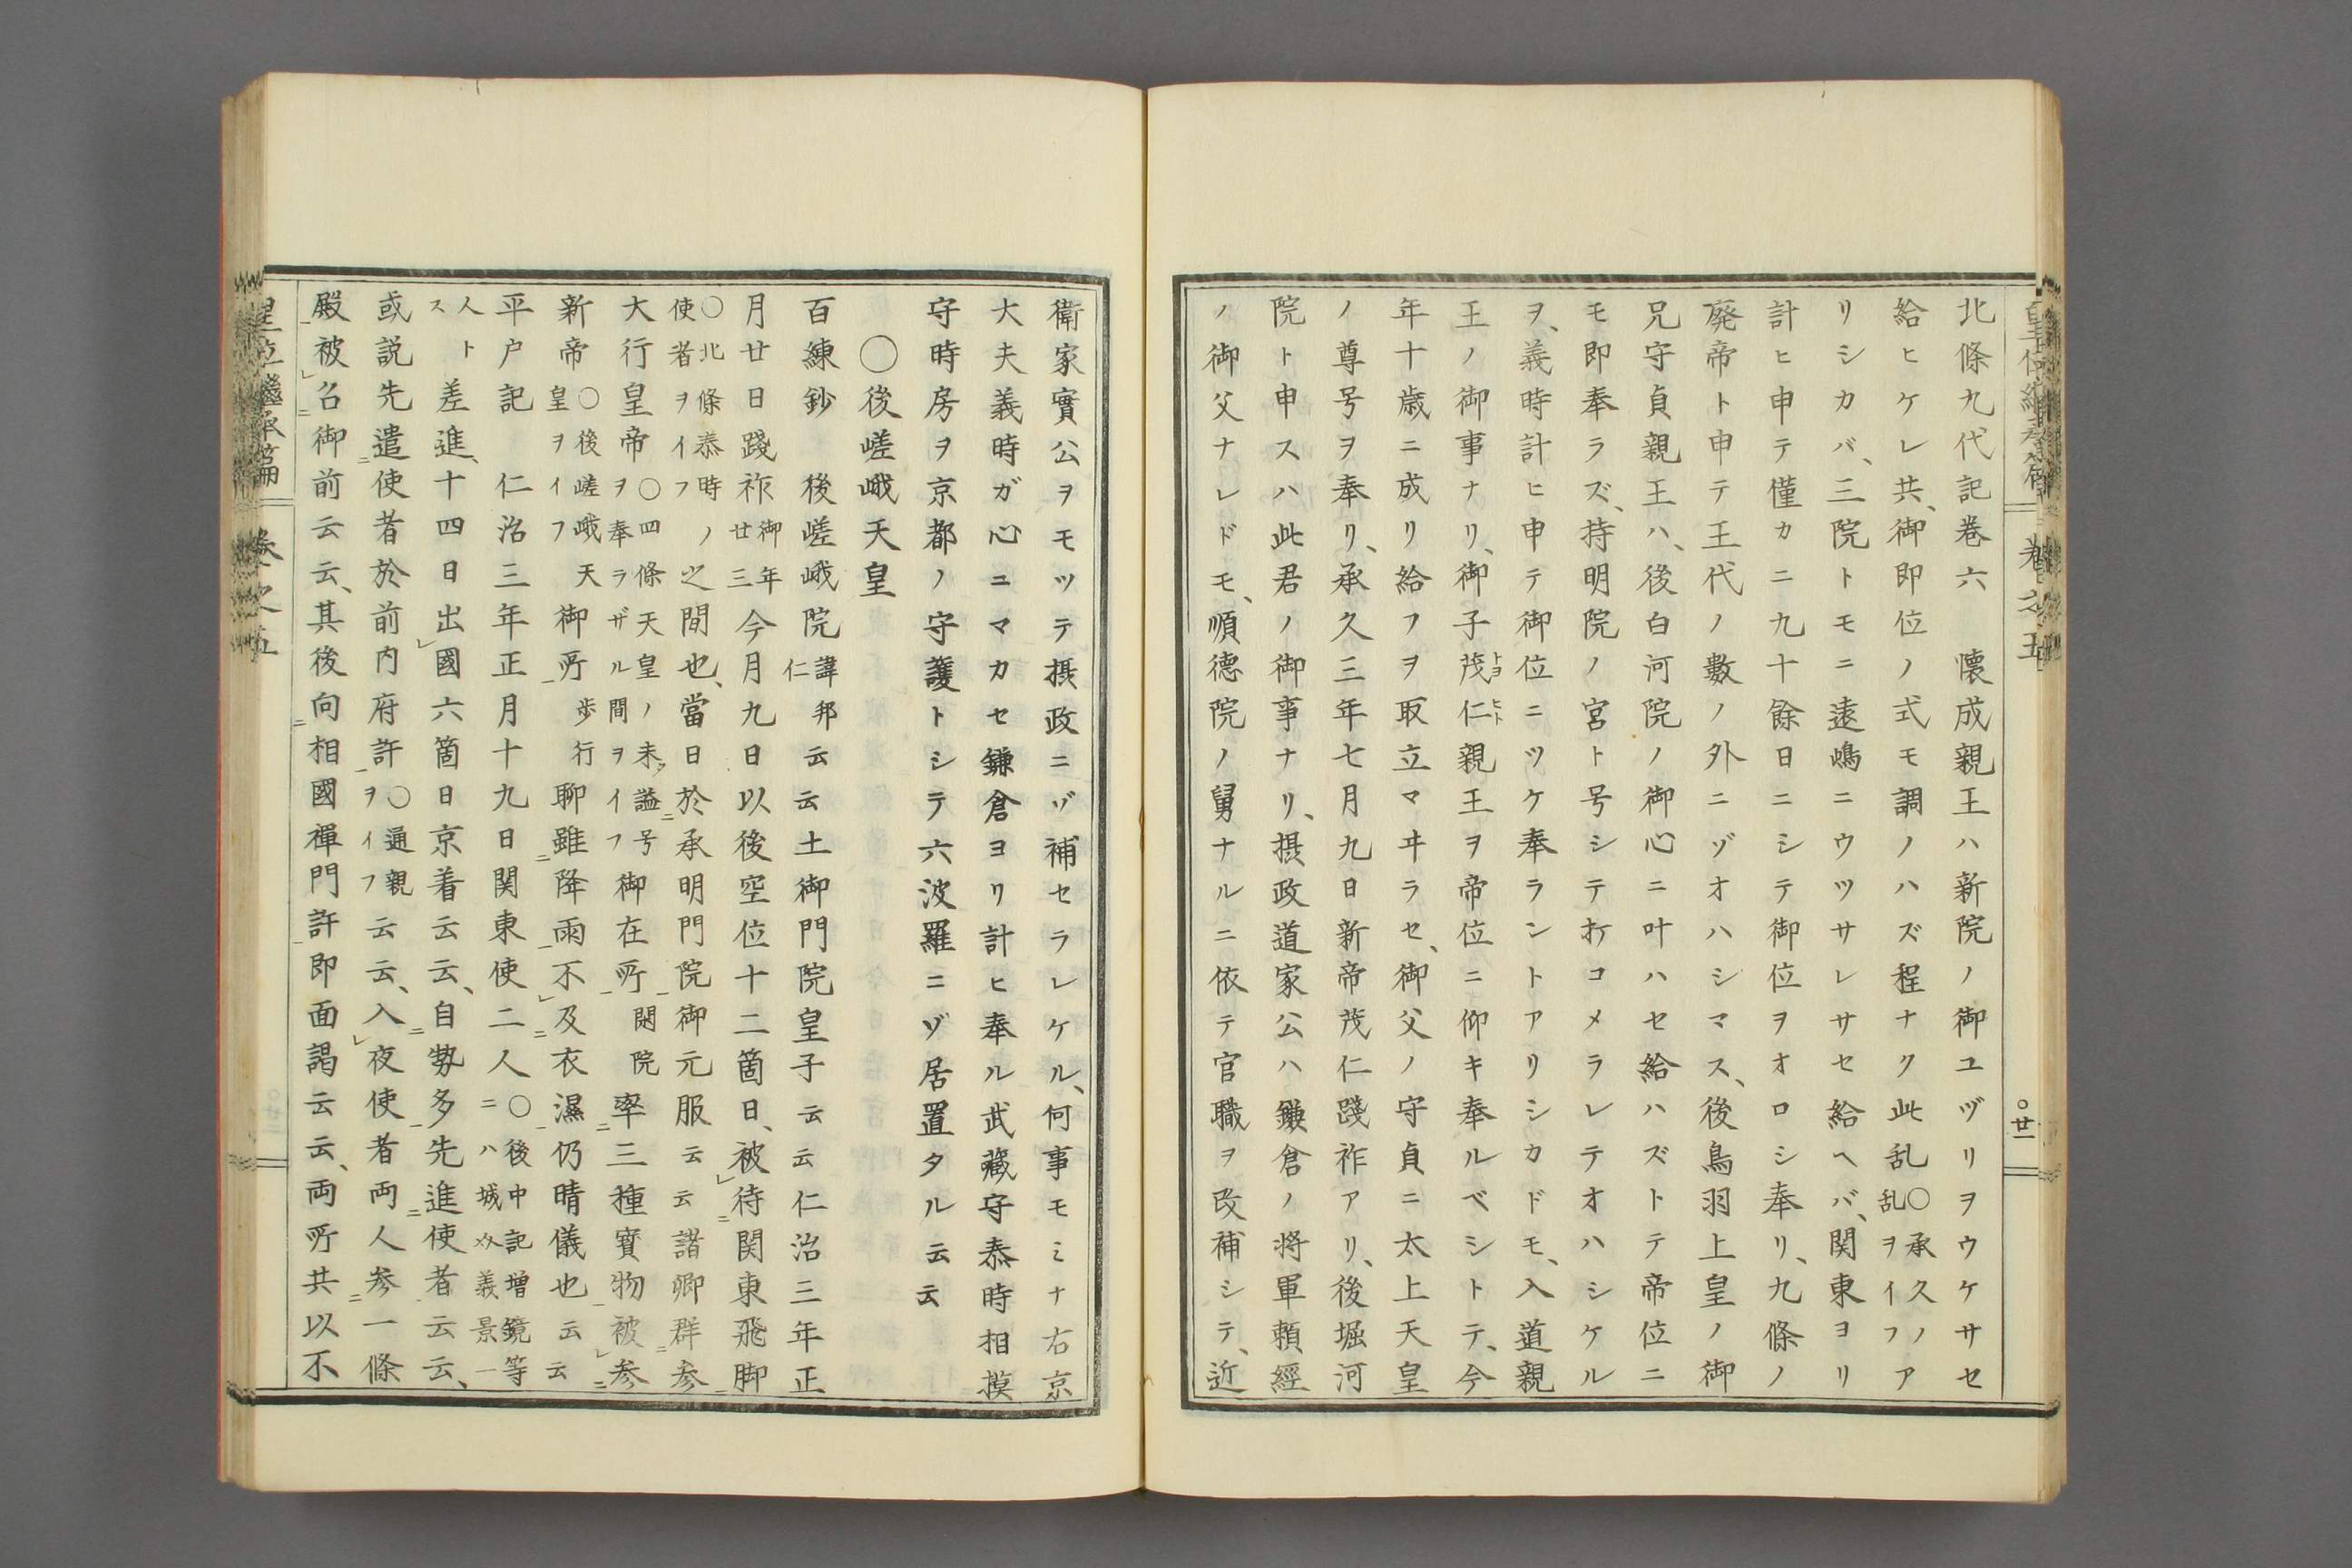 北條九代記巻六　懐成親王ハ新院ノ御ユヅリヲウケサセ
給ヒケレ共、御即位ノ式モ調ノハズ程ナク此乱〇承久ノ乱ヲイフア
リシカバ、三院トモニ遠嶋ニウツサレサセ給ヘバ、関東ヨリ
計ヒ申テ僅カニ九十餘日ニシテ御位ヲオロシ奉リ、九條ノ
廃帝ト申テ王代ノ數ノ外ニゾオハシマス、後鳥羽上皇ノ御
兄守貞親王ハ、後白河院ノ御心ニ叶ハセ給ハズトテ帝位ニ
モ即奉ラズ、持明院ノ宮ト号シテオコメラレテオハシケル
ヲ、義時計ヒ申テ御位ニツケ奉ラントアリシカドモ、入道親
王ノ御事ナリ、御子茂仁親王ヲ帝位ニ仰キ奉ルベシトテ、今
年十歳ニ成リ給フヲ取立マヰラセ、御父ノ守貞ニ太上天皇
ノ尊号ヲ奉リ、承久三年七月九日新帝茂仁踐祚アリ、後堀河
院ト申スハ此君ノ御事ナリ、摂政道家公ハ鎌倉ノ将軍頼經
ノ御父ナレドモ、順德院ノ舅ナルニ依テ官職ヲ改補シテ、近
衛家實公ヲモツテ摂政ニゾ補セラレケル、何事モミナ右京
大夫義時ガ心ニマカセ鎌倉ヨリ計ヒ奉ル武藏守泰時相摸
守時房ヲ京都ノ守護トシテ六波羅ニゾ居置タル云云
〇後嵯峨天皇
百練鈔　後嵯峨院諱邦仁云云土御門院皇子云云仁治三年正
月廿日踐祚御年廿三今月九日以後空位十二箇日、被待関東飛脚
〇北條泰時ノ使者ヲイフ之間也、當日於承明門院御元服云云諸卿群参
大行皇帝〇四條天皇ノ未タ謚号ヲ奉ラザル間ヲイフ御在所閑院率三種寶物被参
新帝〇後嵯峨天皇ヲイフ御所歩行聊雖降雨不及衣濕仍晴儀也云云
平戸記　仁治三年正月十九日関東使二人〇後中記増鏡等ニハ城介義景一
人トス差進、十四日出國六箇日京着云云、自勢多先進使者云云、
或説先遣使者於前内府許〇通親ヲイフ云云、入夜使者両人参一條
殿被召御前云云、其後向相國禪門許即面謁云云、両所共以不
皇位繼承篇　巻之五　〇廿一